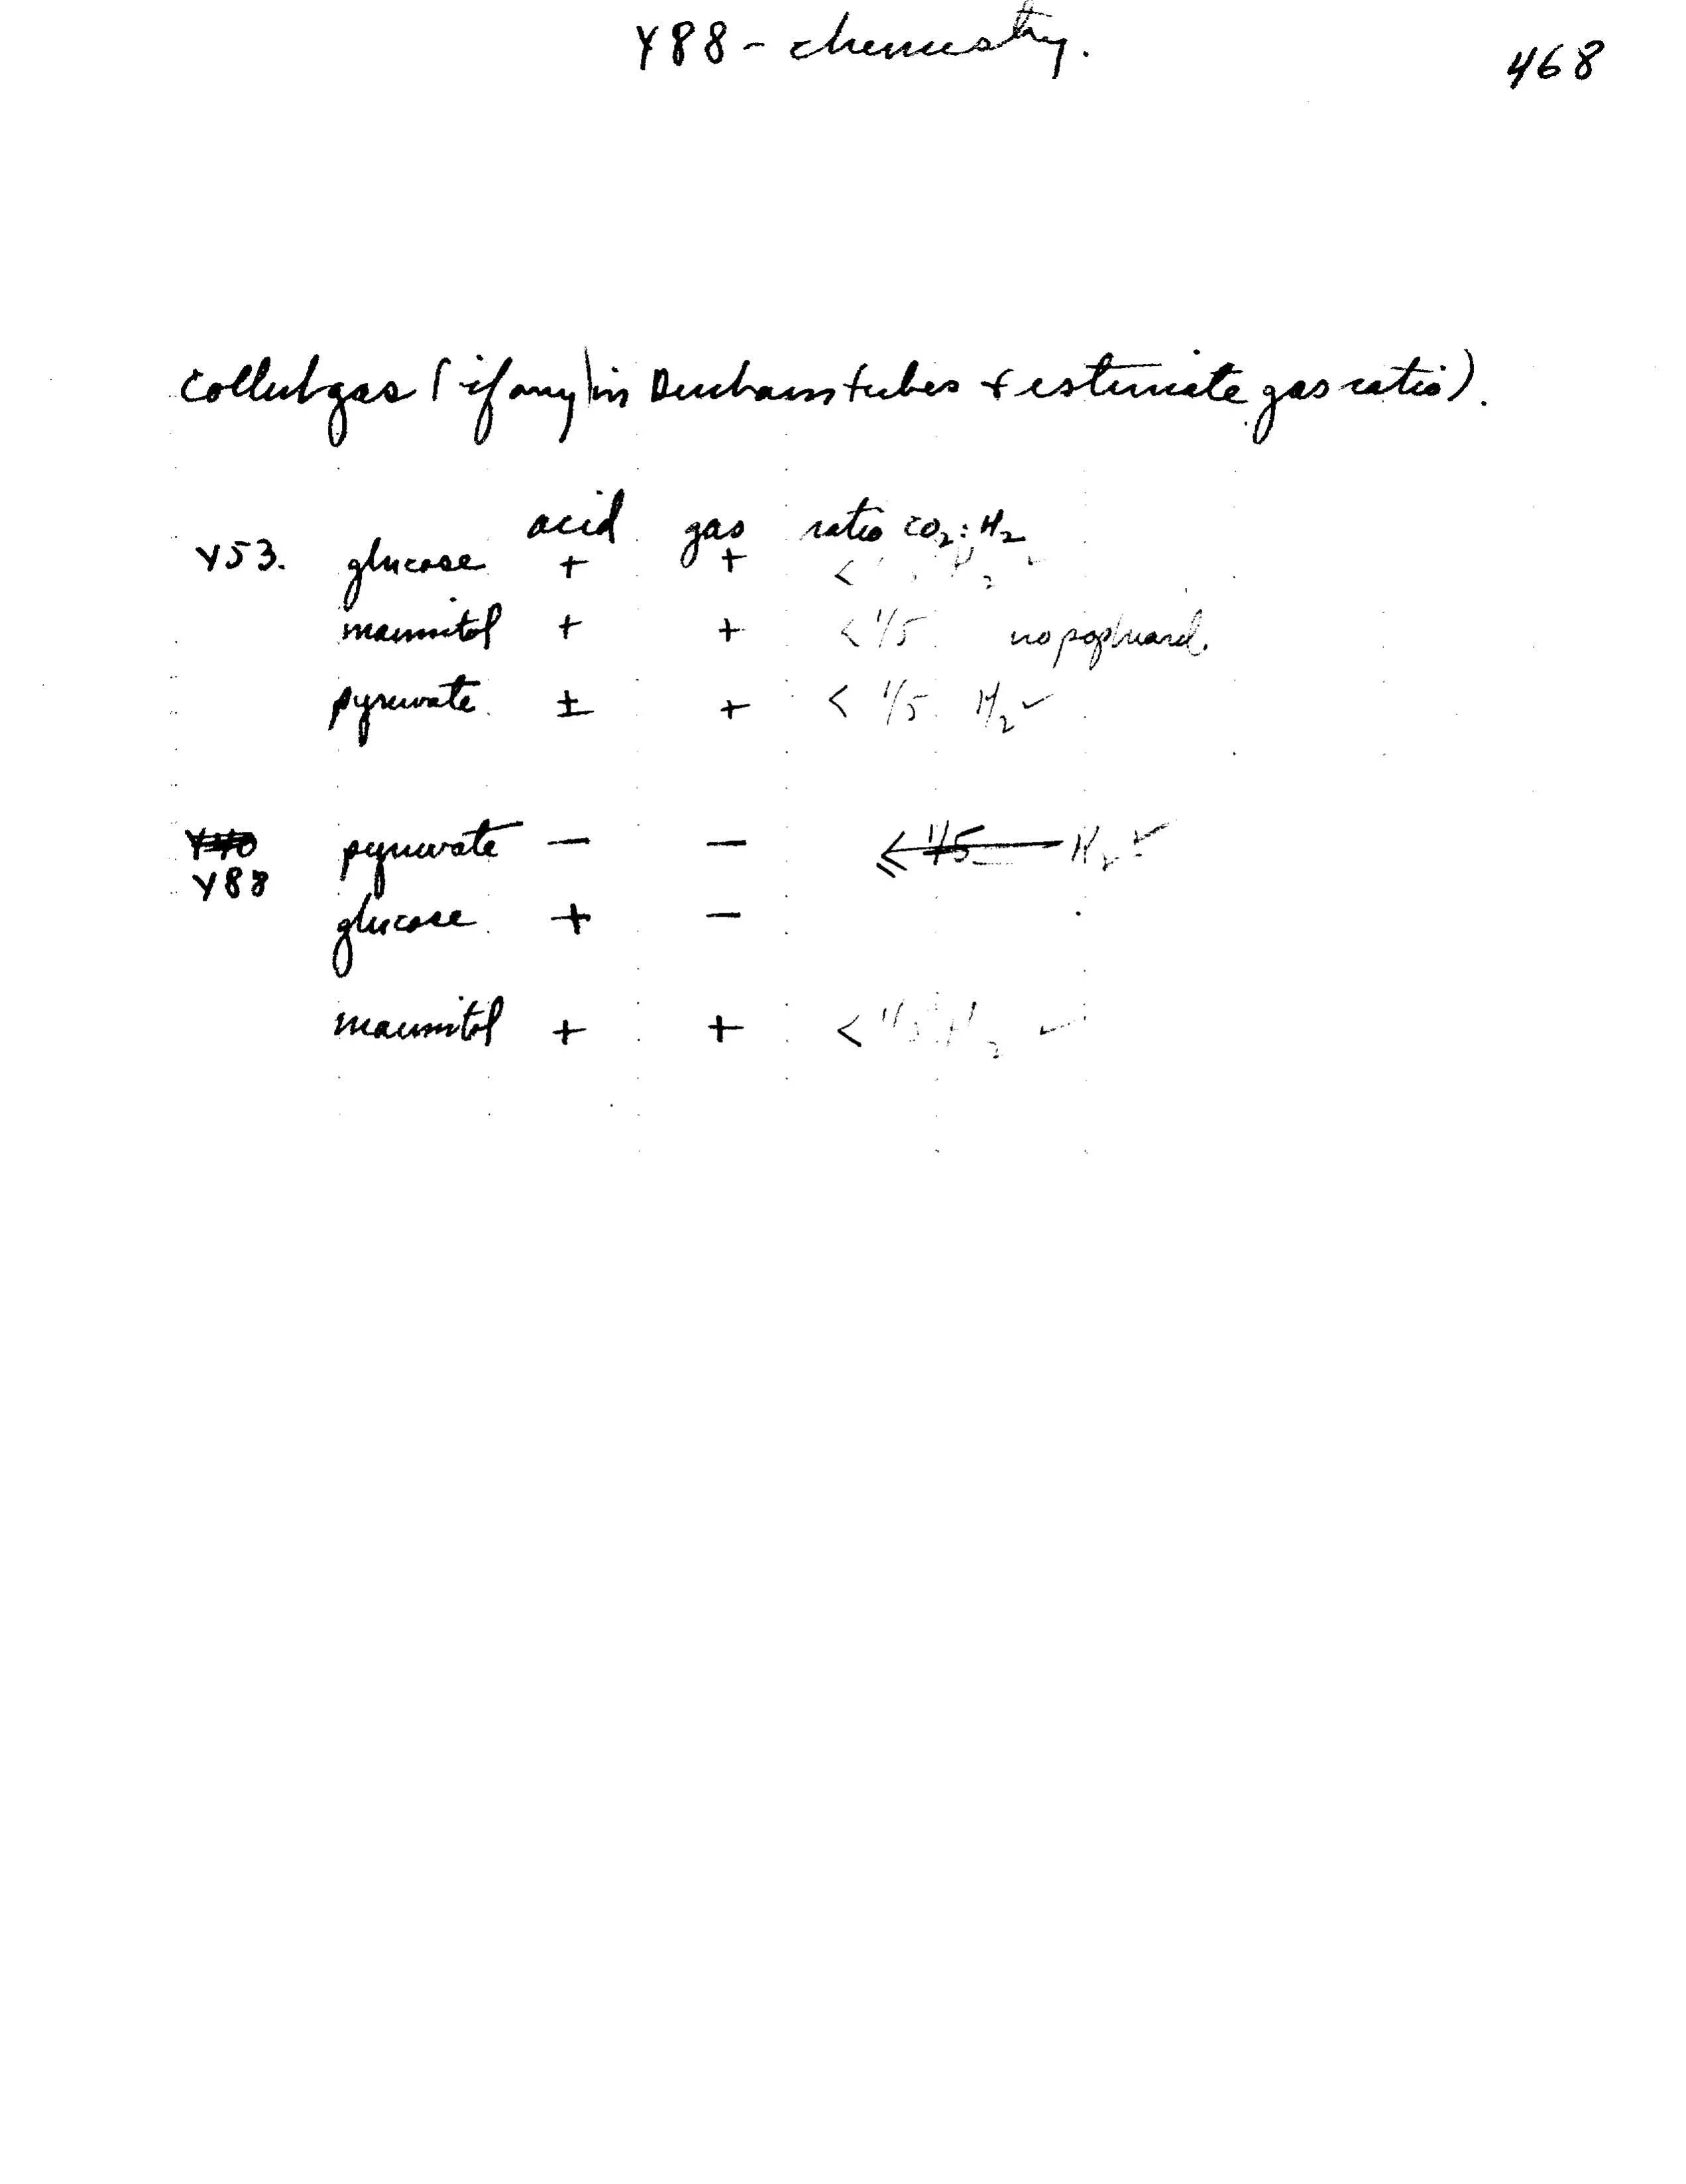 Y88 - chemistry.
468
Collect gas (if any) in Durham tubes & estimate gas ratio).
acid gas ratio CO2:H2
Y53. glucose + + < H2 ✓
mannitol + + < 1/5 no pop heard.
pyruvate ± + < 1/5 H2 ✓
Y40 pyruvate — — < 1/5 H2 ✓
Y88
glucose + —
mannitol + + < 1/5 H2 ✓